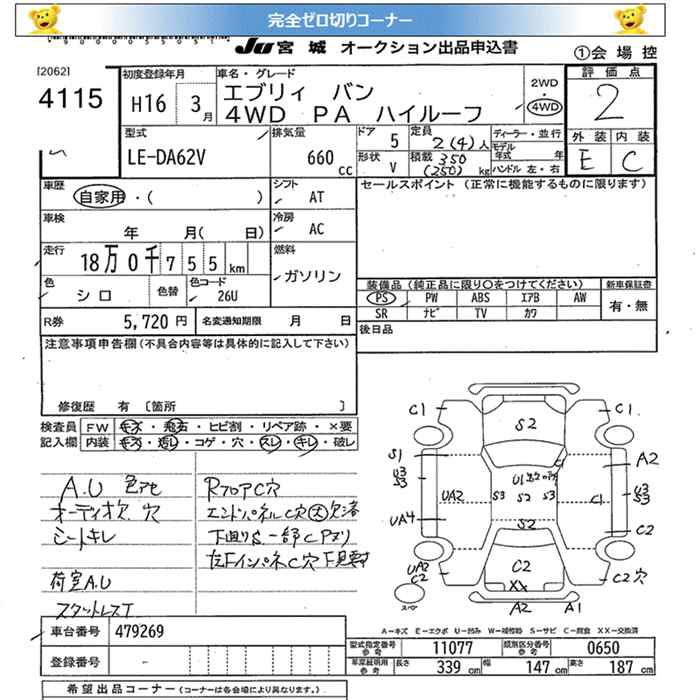 完全ゼロ切りコーナー
JU 宮城 オークション出品申込書
①会場控
[2062]
4115
初度登録年月
H16 3月
車名・グレード
エブリィ バン
4WD PA ハイルーフ
2WD
・
4WD
評価点
2
外装 内装
E C
型式
LE-DA62V
排気量
660 cc
ドア 5
形状 V
定員 2(4)人
積載 350 (250) kg
ディーラー・並行
モデル年式 年
ハンドル 左・右
車歴
自家用・( )
シフト
AT
車検
年 月( 日)
冷房
AC
走行
18万0千755km
燃料
ガソリン
色
シロ
色替
色コード
26U
R券 5,720円
名変通知期限 月 日
セールスポイント (正常に機能するものに限ります)
装備品(純正品に限り○をつけてください)
新車保証書
PS PW ABS エアB AW
SR ナビ TV カワ
有・無
後日品
注意事項申告欄(不具合内容等は具体的に記入して下さい)
修復歴 有 〔箇所 〕
検査員 FW キズ・飛石・ヒビ割・リペア跡・×要
記入欄 内装 キズ・汚レ・コゲ・穴・スレ・キレ・破レ
A.U 色アセ
オーディオ欠 穴
シートキレ
荷室A.U
スタットレスT
RフロアC穴
エンドパネルC穴大欠済
下廻りS 一部Cアリ
左F インパネC穴
C1 S2 C1
S1 A2
U3 S3
UA2 S3 S2 S3 C1
U3 S3
UA4 S2 C2
UA2 C2
C2 XX
C2穴
スペア
A2 A1
A-キズ E-エクボ U-凹み W-補修跡 S-サビ C-腐食 XX-交換済
車台番号 479269
登録番号 -
型式指定番号 参考 11077
類別区分番号 参考 0650
車庫証明用 参考 長さ 339 cm 幅 147 cm 高さ 187 cm
希望出品コーナー (コーナーは各会場により異なります。)